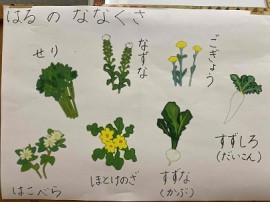 はるのななくさ
せり
なずな
ごぎょう
はこべら
ほとけのざ
すずな
(かぶ)
すずしろ
(だいこん)